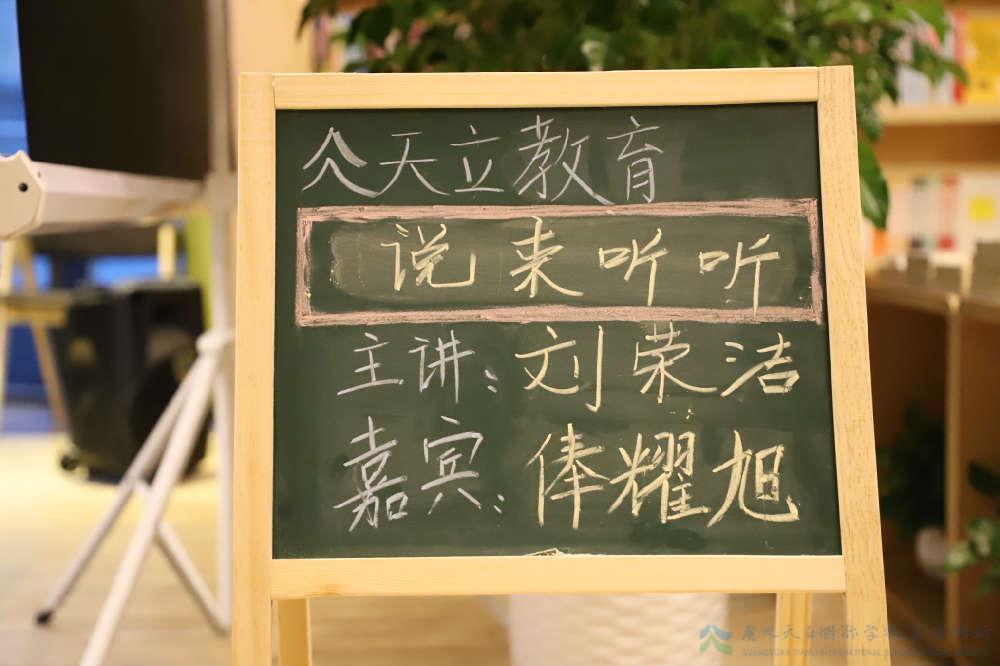 天立教育
说来听听
主讲:刘荣洁
嘉宾:俸耀旭
广元天立国际学校
GUANGYUAN TIANLI INTERNATIONAL SCHOOL